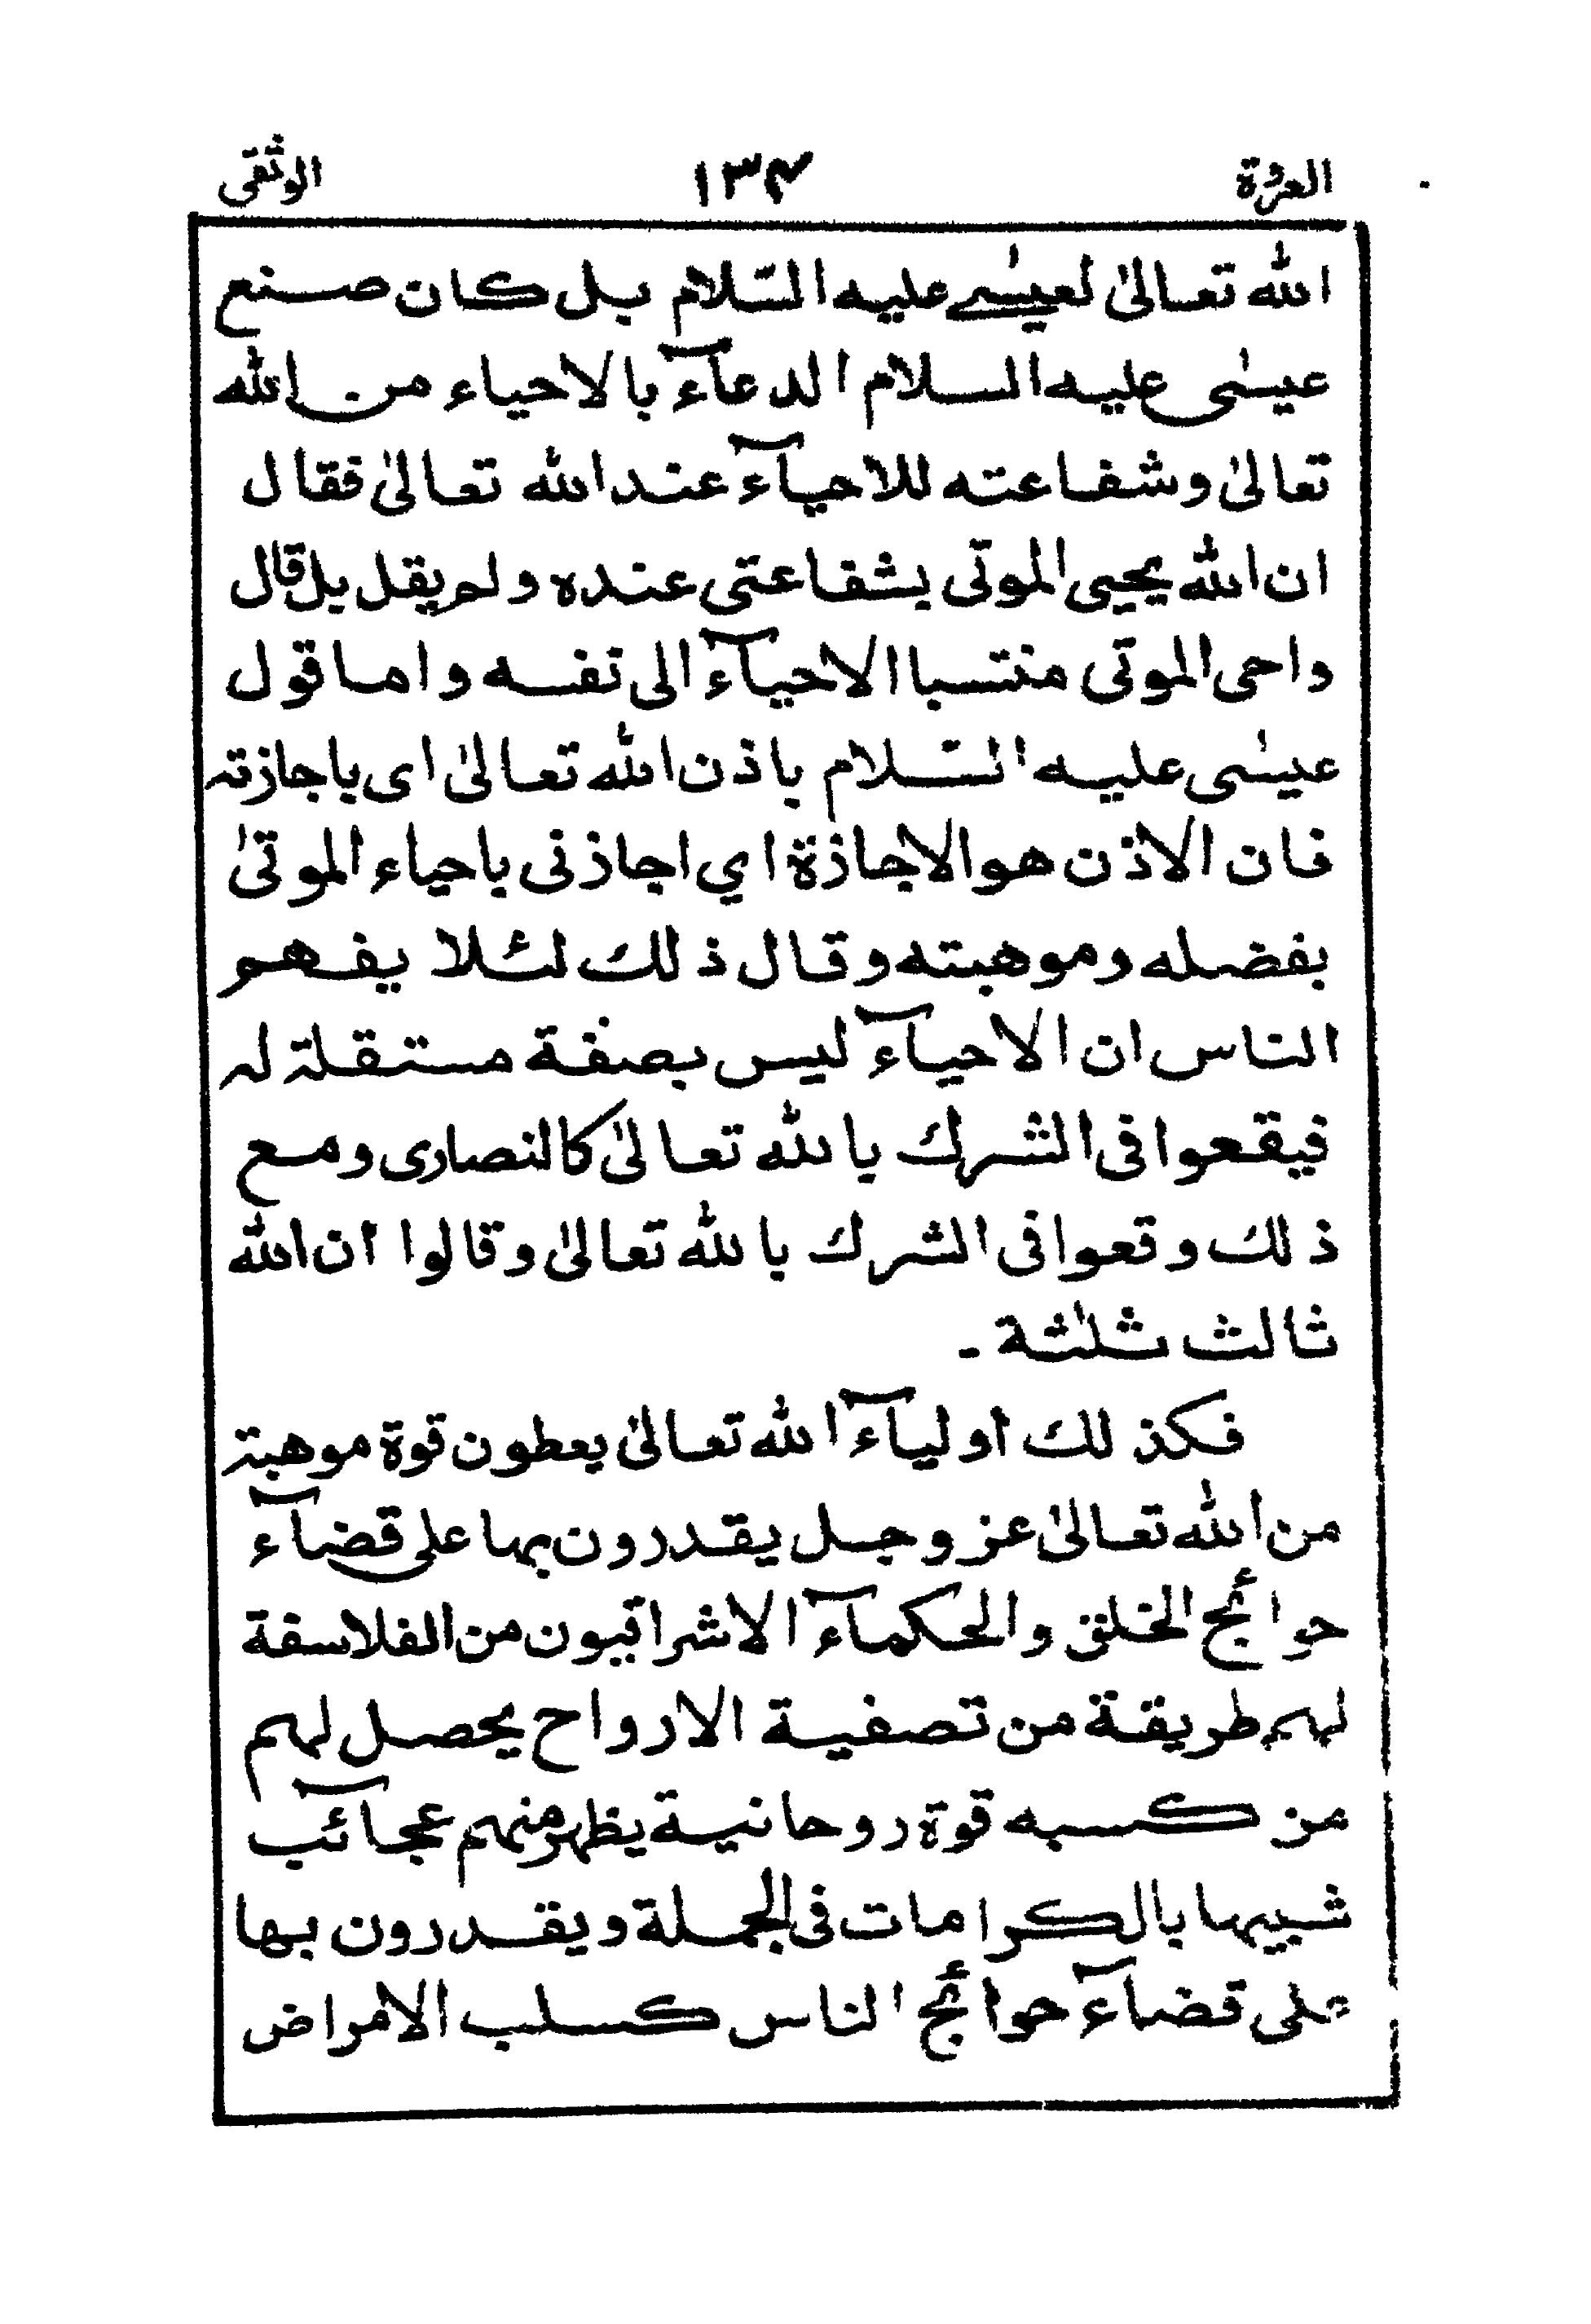 العروة ۱۳۴ الوثقى
الله تعالىٰ لعيسٰے عليه السّلام بل كان صنع
عيسٰى عليه السلام الدعآء بالاحياء من الله
تعالىٰ وشفاعته للاحيآء عند الله تعالىٰ فقال
ان الله يحيى الموتى بشفاعتى عنده ولم يقل بل قال
واحى الموتى منتسبا الاحيآء الى نفسه واما قول
عيسٰى عليه السّلام باذن الله تعالىٰ اى باجازته
فان الاذن هو الاجازة اي اجازنى باحياء الموتىٰ
بفضله وموهبته وقال ذلك لئلا يفهم
الناس ان الاحيآء ليس بصفة مستقلة له
فيقعوا فى الشرك بالله تعالىٰ كالنصارى ومع
ذلك وقعوا فى الشرك بالله تعالىٰ وقالوا ان الله
ثالث ثلٰثة ـ
فكذلك اوليآء الله تعالىٰ يعطون قوة موهبة
من الله تعالىٰ عز وجل يقدرون بها على قضآء
حوائج الخلق والحكمآء الاشراقيون من الفلاسفة
لهم طريقة من تصفية الارواح يحصل لهم
من كسبه قوة روحانية يظهر منهم عجائب
شبيها بالكرامات فى الجملة ويقدرون بها
على قضآء حوائج الناس كسلب الامراض